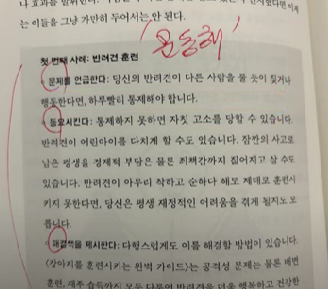 는 이들을 그냥 가만히 두어서는 안 된다.
문동해
첫 번째 사례: 반려견 훈련
문제를 언급한다: 당신의 반려견이 다른 사람을 물 듯이 짖거나
행동한다면, 하루빨리 통제해야 합니다.
동요시킨다: 통제하지 못하면 자칫 고소를 당할 수 있습니다.
반려견이 어린아이를 다치게 할 수도 있습니다. 잠깐의 사고로
남은 평생을 경제적 부담은 물론 죄책감까지 짊어지고 살 수도
있습니다. 반려견이 아무리 착하고 순하다 해도 제대로 훈련시
키지 못한다면, 당신은 평생 재정적인 어려움을 겪게 될지도 모
릅니다.
해결책을 제시한다: 다행스럽게도 이를 해결할 방법이 있습니다.
《강아지를 훈련시키는 완벽 가이드》는 공격성 문제는 물론 배변